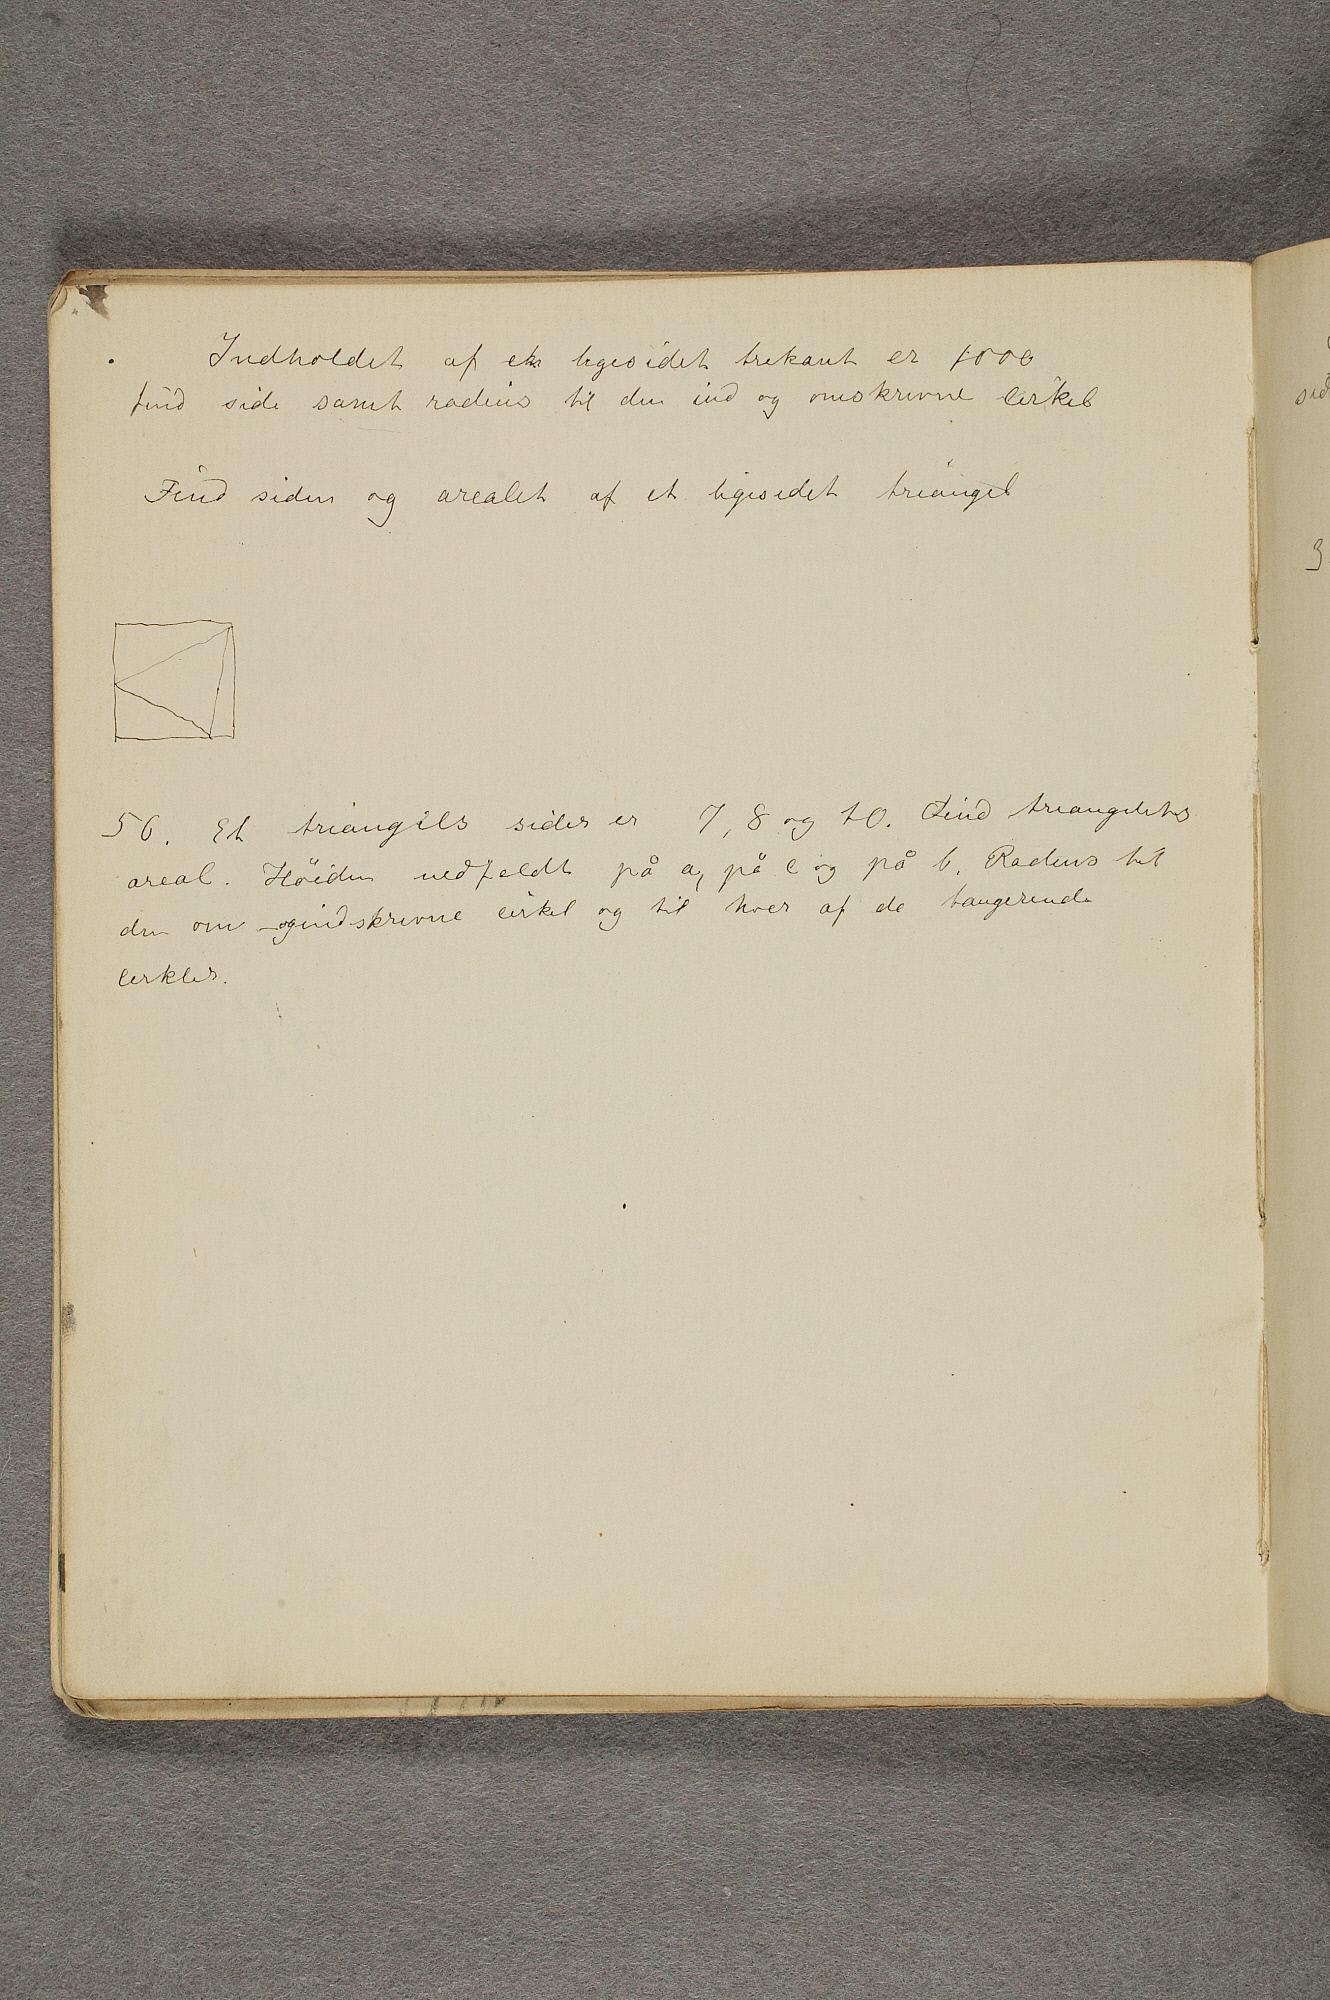 Indholdet af en ligesidet trekant er 1000
find side samt radius til den ind og omskrevne cirkel
Find siden og arealet af et ligesidet triangel
56. Et triangels sider er 7, 8 og 10. Find triangelets
areal. Höiden nedfeldt på a, på c og på b. Radius til
den om - og indskrevne cirkel og til hver af de tangerende
cirkler.
sid
3